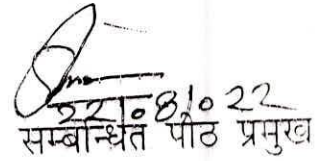 22/08/022
सम्बन्धित पीठ प्रमुख